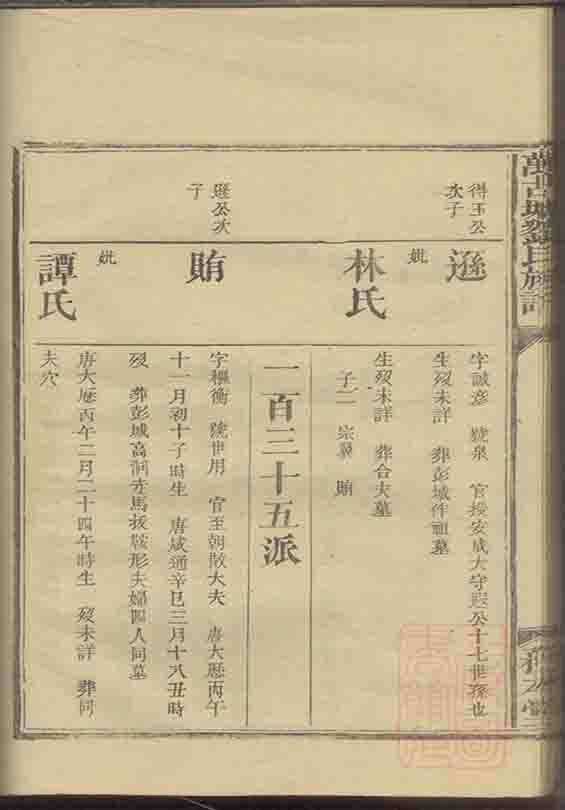 得玉公次子
遜
字誠意 號泉 官授安成太守遐公十七世孫也
生歿未詳 葬彭城伴祖墓
妣
林氏
生歿未詳 葬合夫墓
子二 宗翼 賄
一百三十五派
遜公次子
賄
字樞衡 號世用 官至朝散大夫 唐大歷丙午
十一月初十子時生 唐咸通辛巳三月十八丑時
歿 葬彭城高洞赤馬拔鞍形夫婦四人同墓
妣
譚氏
唐大歷丙午二月二十四午時生 歿未詳 葬同
夫穴